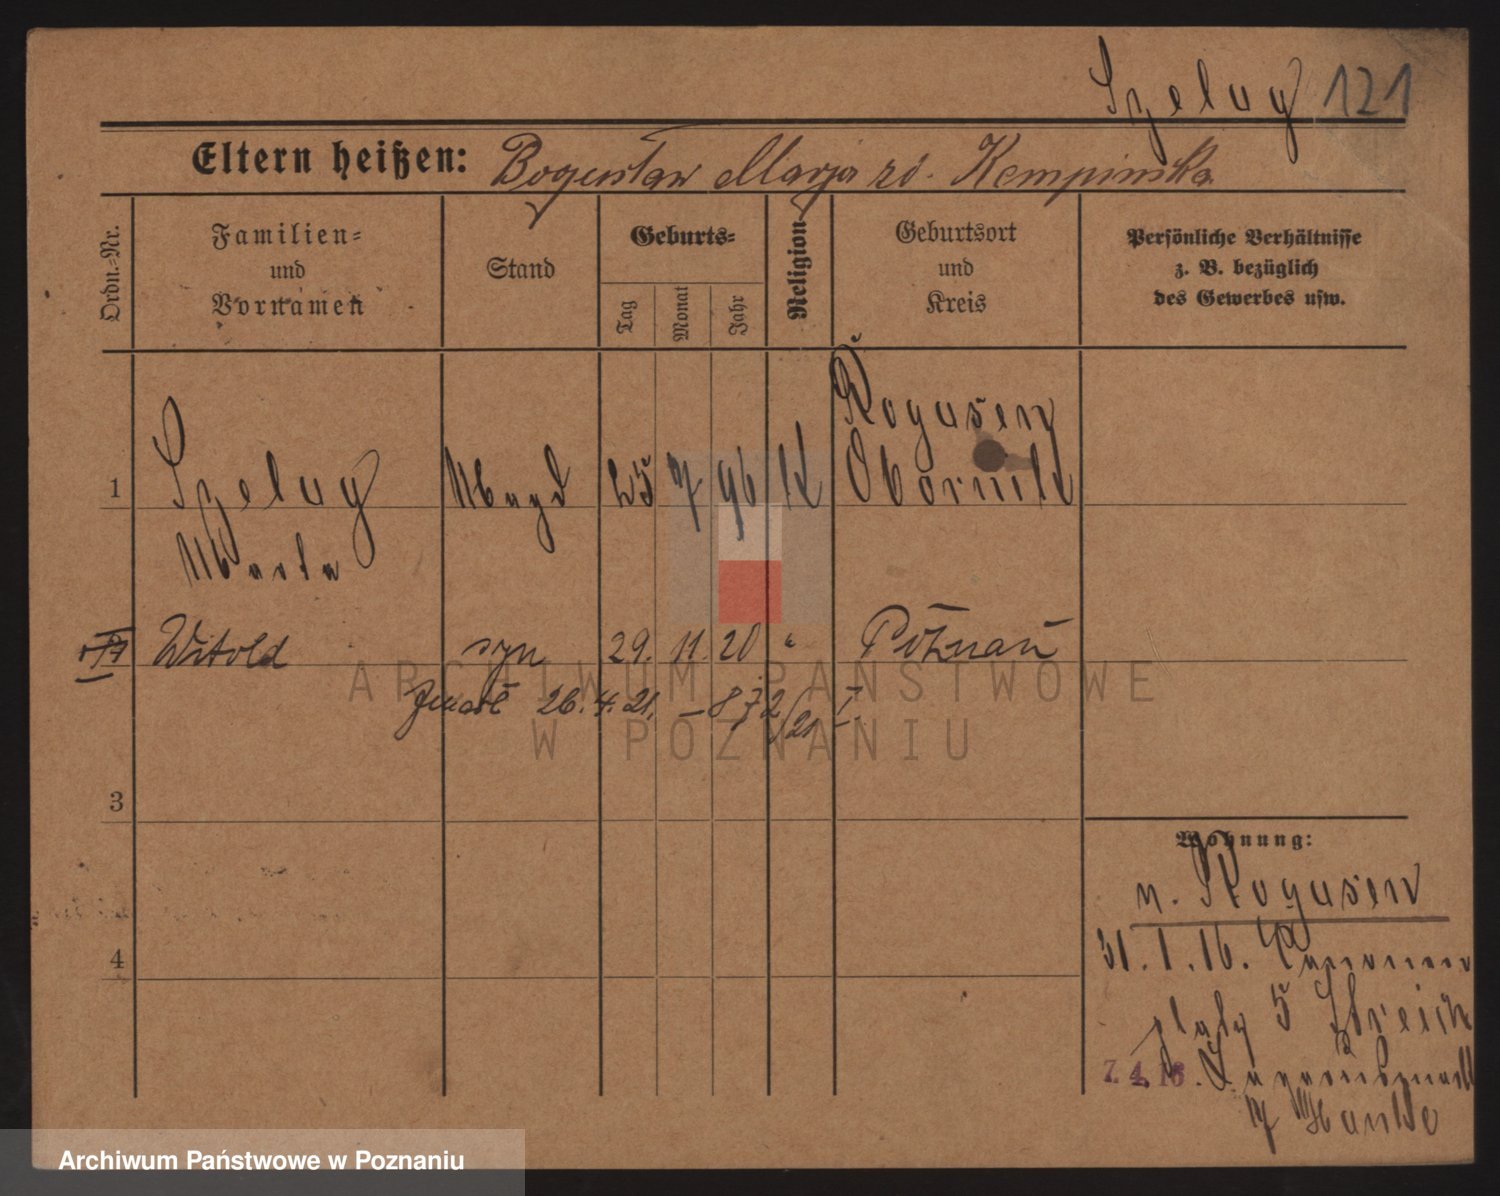 Szelag 121
Eltern heißen: Bogusław Marja rd. Kempinska
Ordn.-Nr.
Familien-
und
Vornamen
Stand
Geburts-
Tag
Monat
Jahr
Religion
Geburtsort
und
Kreis
Persönliche Verhältnisse
z. B. bezüglich
des Gewerbes usw.
1 Szelag Magd 25 7 96 K Rogasen Obornik
Marta
Witold syn 29. 11. 20 " Poznań
Zmarł 26. 4. 21. – 872/21 I.
3
Wohnung:
n. Rogasen
4
31. 1. 16.
platz 5 Streich
7. 4. 16.
7 Hanke
ARCHIWUM PAŃSTWOWE
W POZNANIU
Archiwum Państwowe w Poznaniu